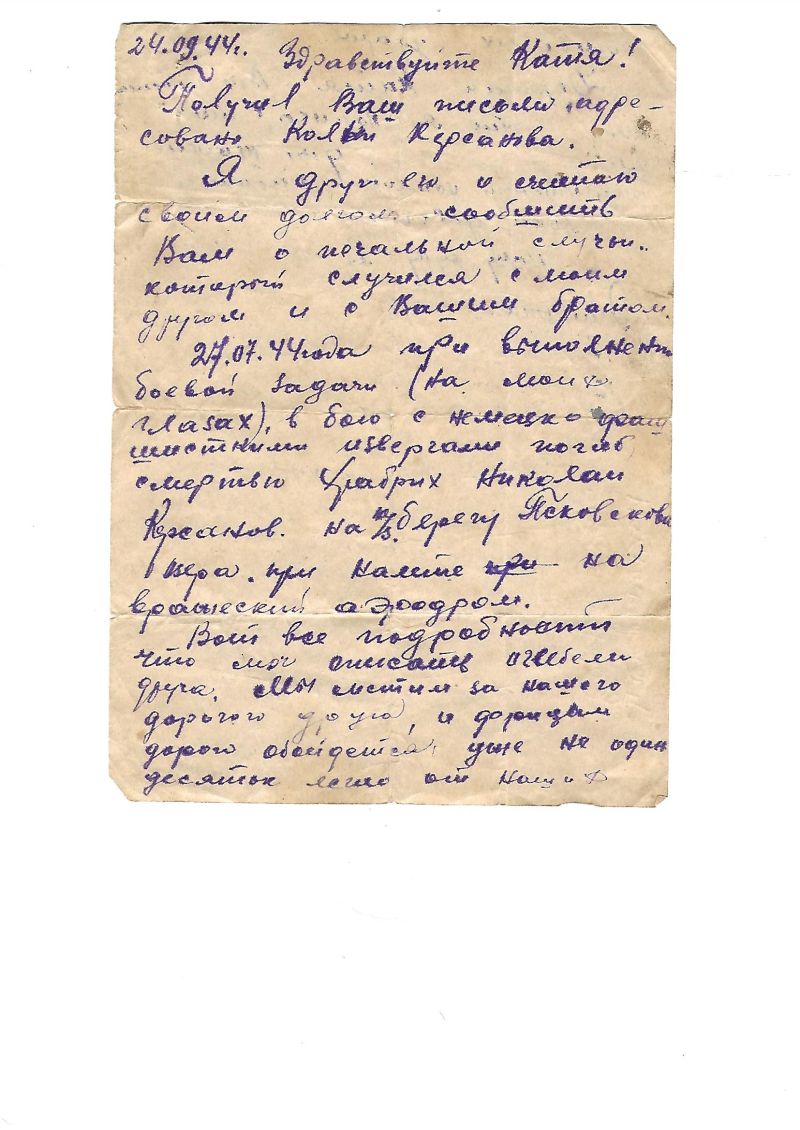 24.09.44г. Здравствуйте Катя!
Получил Ваш письмо адре-
совано Кольи Керсанова.
Я друг его и считаю
своим долгом сообщить
Вам о печальной случаи..
который случился с моим
другом и с Вашим братом.
27.07.44 года при выполнении
боевой задачи (на моих
глазах), в бою с немецко фаш
шисткими извергами погиб
смертью храбрих Николай
Керсанов. на в/з. берегу Псковскова
Озера. при налете при на
вражеский аэродром.
Вот все подробности
что мог описать о гибели
друга. Мы мстим за нашего
дорогого друга, и фрицам
дорого обойдется, уже не один
десяток легло от наших